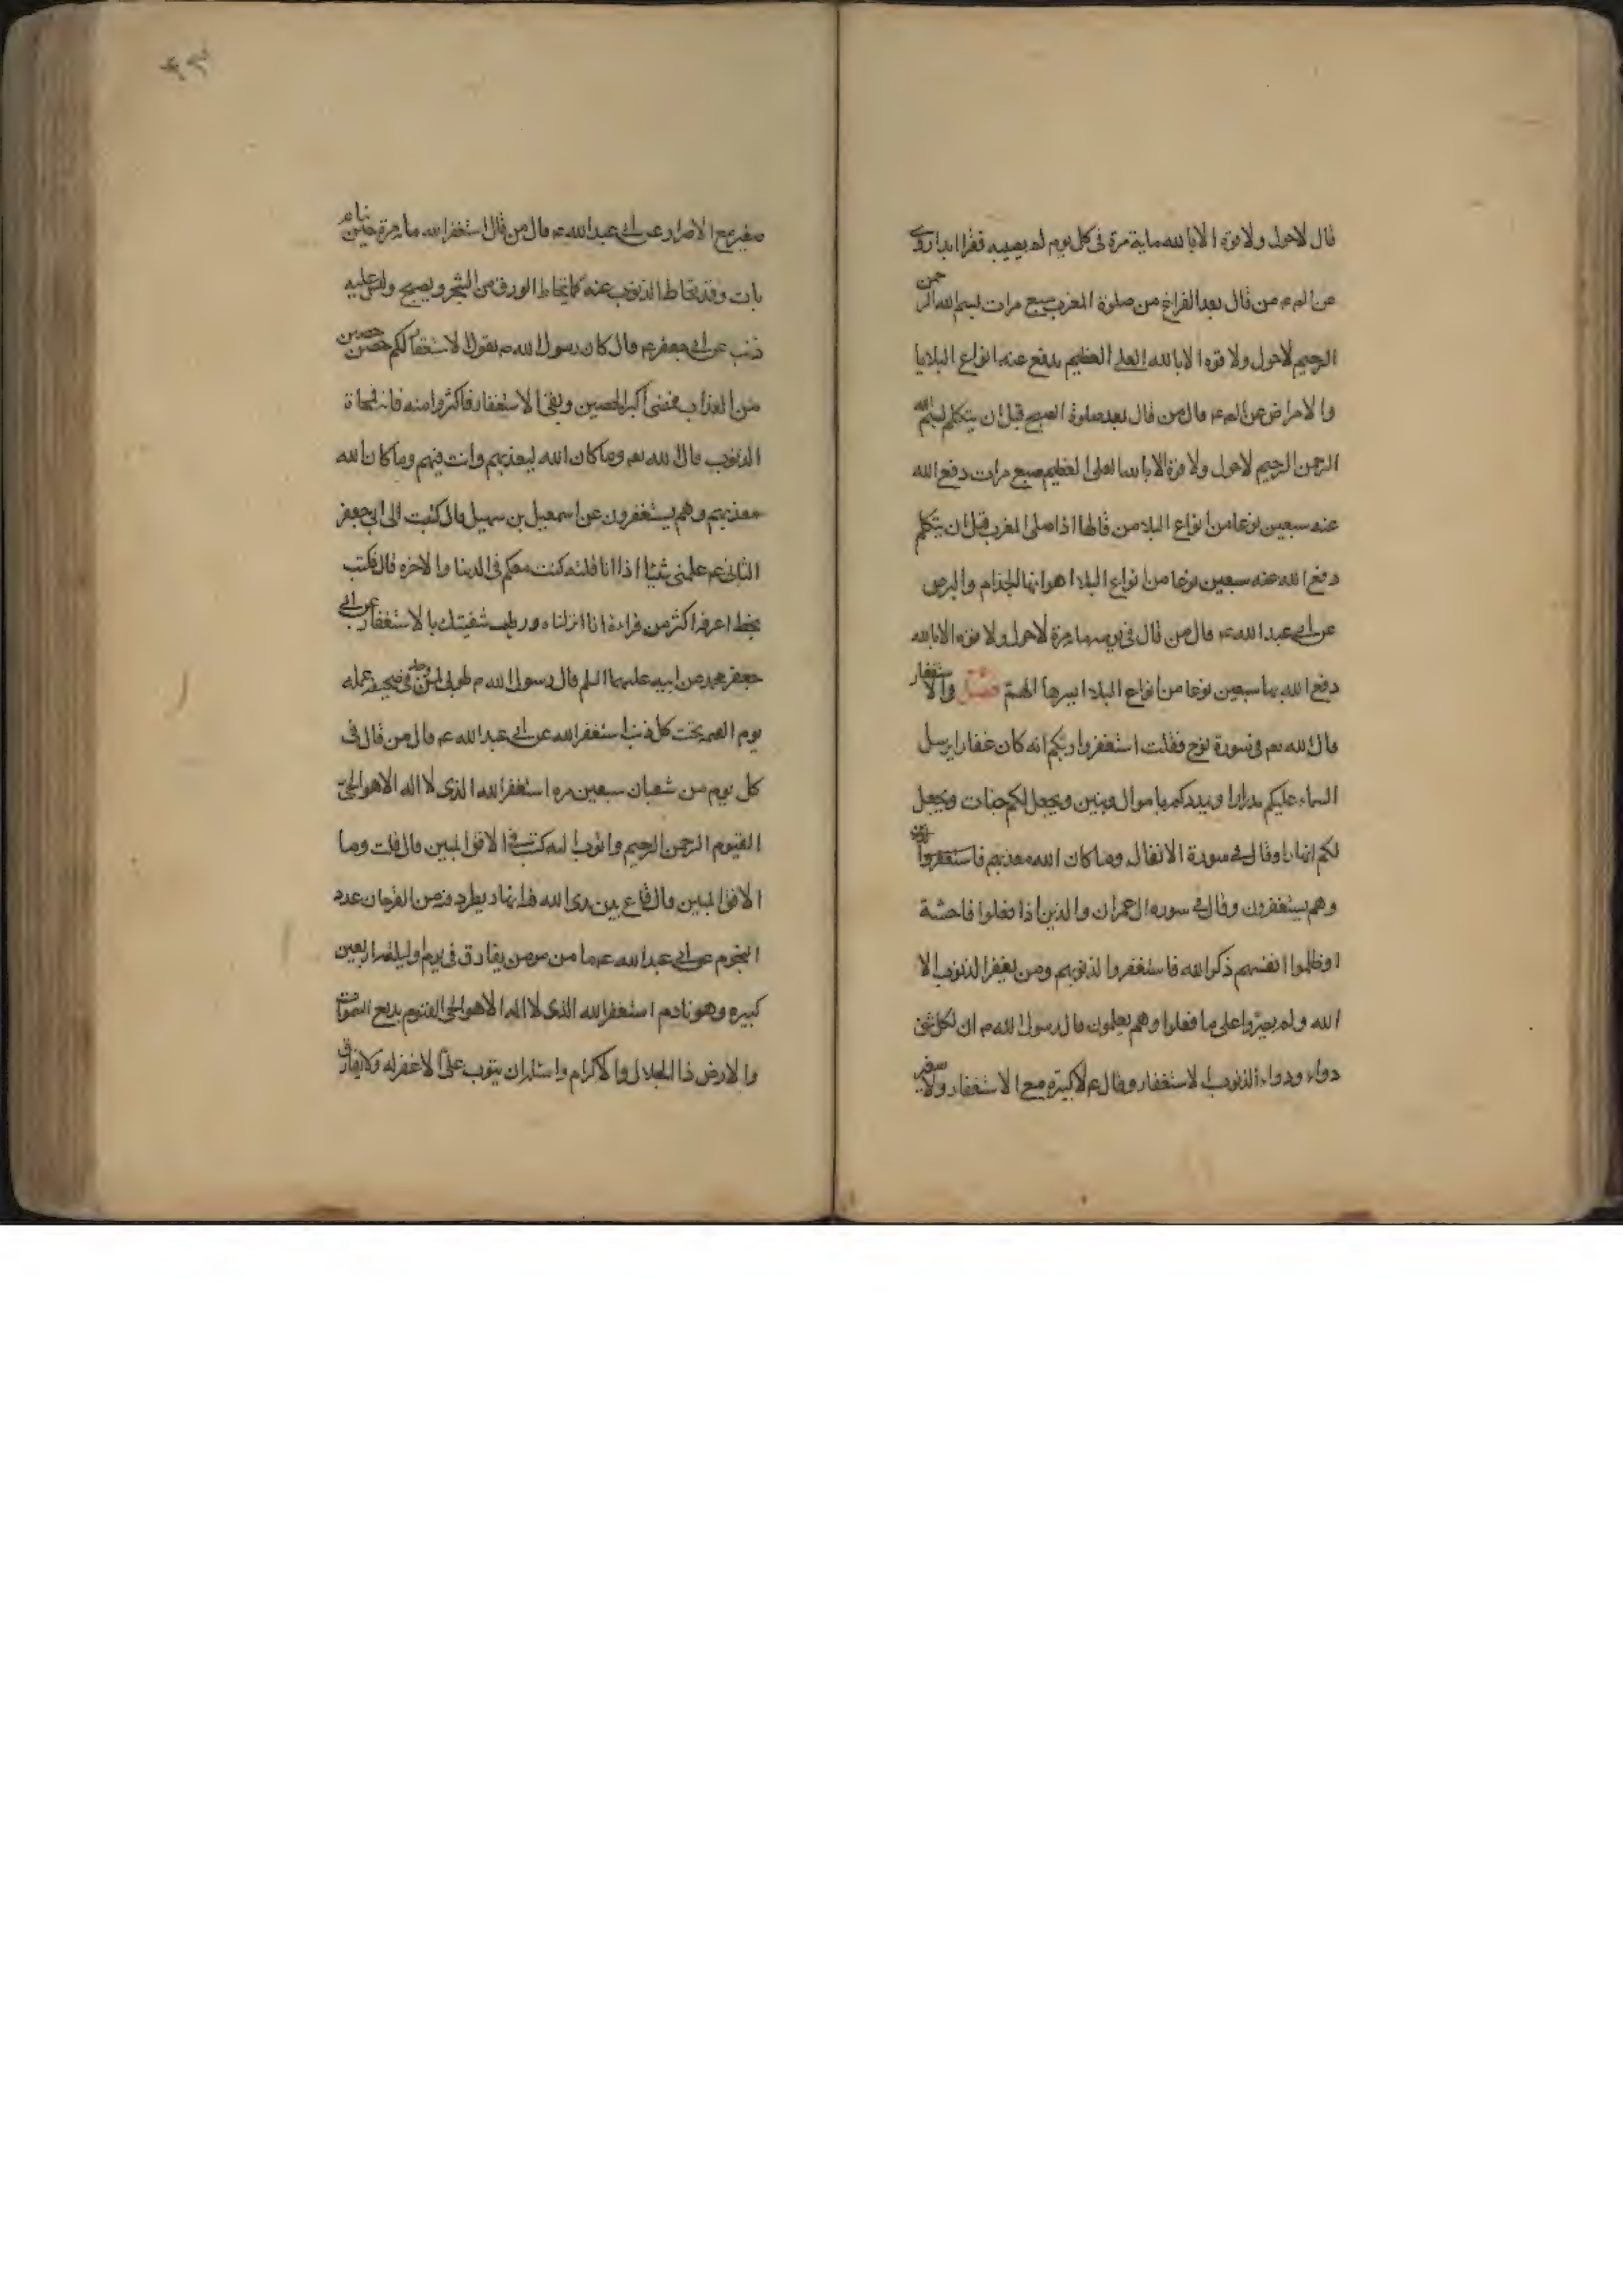 قال لاحول ولا قوة الا بالله ماية مرة فى كل يوم لم يصيبه فقرا ابدا روى
عن الصم من قال بعد الفراغ من صلوة المغرب سبع مرات بسم الله الرحمن
الرحيم لاحول ولا قوه الا بالله العلى العظيم يدفع عنه انواع البلايا
والامراض عن الصم قال من قال بعد صلوة الصبح قبل ان يتكلم بسم الله
الرحمن الرحيم لاحول ولا قوة الا بالله العلى العظيم سبع مرات دفع الله
عنه سبعين نوعا من انواع البلا من قالها اذا صلى المغرب قبل ان يتكلم
دفع الله عنه سبعين نوعا من انواع البلا اهوانها الجذام والبرص
عن ابى عبد الله ع قال من قال فى يوم مرة لاحول ولا قوه الا بالله
دفع الله بها سبعين نوعا من انواع البلا ايسرها الهم فصل والاستغفار
قال الله تع فى سورة نوح فقلت استغفروا ربكم انه كان غفارا يرسل
السماء عليكم مدرارا ويمددكم باموال وبنين ويجعل لكم جنات ويجعل
لكم انهارا وقال فى سورة الانفال وما كان الله معذبهم فاستغفروا
وهم يستغفرون وقال فى سوره ال عمران والذين اذا فعلوا فاحشة
او ظلموا انفسهم ذكروا الله فاستغفروا لذنوبهم ومن يغفر الذنوب الا
الله ولم يصروا على ما فعلوا وهم يعلمون قال رسول الله ص ان لكل شئ
دواء ودواء الذنوب الاستغفار وقال ع لا كبيرة مع الاستغفار ولا صغير
صغير مع الاصرار عن ابى عبد الله ع قال من قال استغفر الله مرة حين ينام
بات وقد تحاط الذنوب عنه كما يتحاط الورق من الشجر ويصبح وليس عليه
ذنب عن ابى جعفر ع قال كان رسول الله ص يقول الاستغفار لكم حصن حصين
من العذاب فمضى اكبر الحصين وبقى الاستغفار فاكثروا منه فانه ممحاة
الذنوب قال الله تع وما كان الله ليعذبهم وانت فيهم وما كان الله
معذبهم وهم يستغفرون عن اسمعيل بن سهيل قال كتبت الى ابى جعفر
الثانى ع علمنى شيئا اذا انا قلته كنت معكم فى الدينا والاخره قال فكتب
بخط اعرفه اكثر من قراءة انا انزلناه ورطب شفيتك بالاستغفار عن ابى
جعفر محمد عن ابيه عليهما السلم قال رسول الله ص طوبى لمن وجد فى صحيفه عمله
يوم القيمه تحت كل ذنب استغفر الله عن ابى عبد الله ع قال من قال فى
كل يوم من شعبان سبعين مره استغفر الله الذى لا اله الا هو الحى
القيوم الرحمن الرحيم واتوب اليه كتب فى الافق المبين قال قلت وما
الافق المبين قال قاع بين يدى الله فيه انهار يطرد فيه من القدحان عدد
النجوم عن ابى عبد الله ع ما من مومن يقارق فى يوم وليله اربعين
كبيره وهو نادم استغفر الله الذى لا اله الا هو الحى القيوم بديع السموات
والارض ذا الجلال والاكرام واسئله ان يتوب على الا غفر له ولا